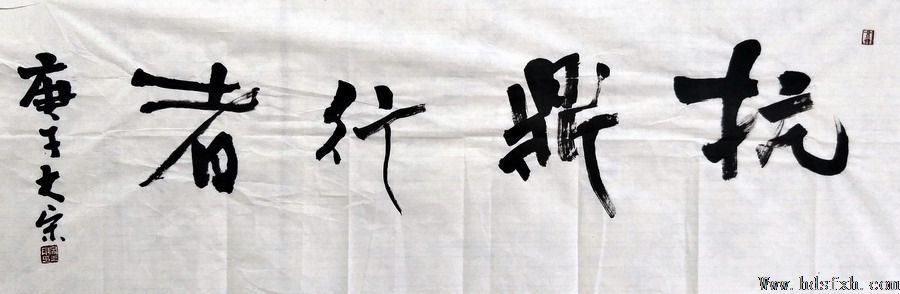 抗鼎行者
庚子大宗
Www.hdsfxh.com